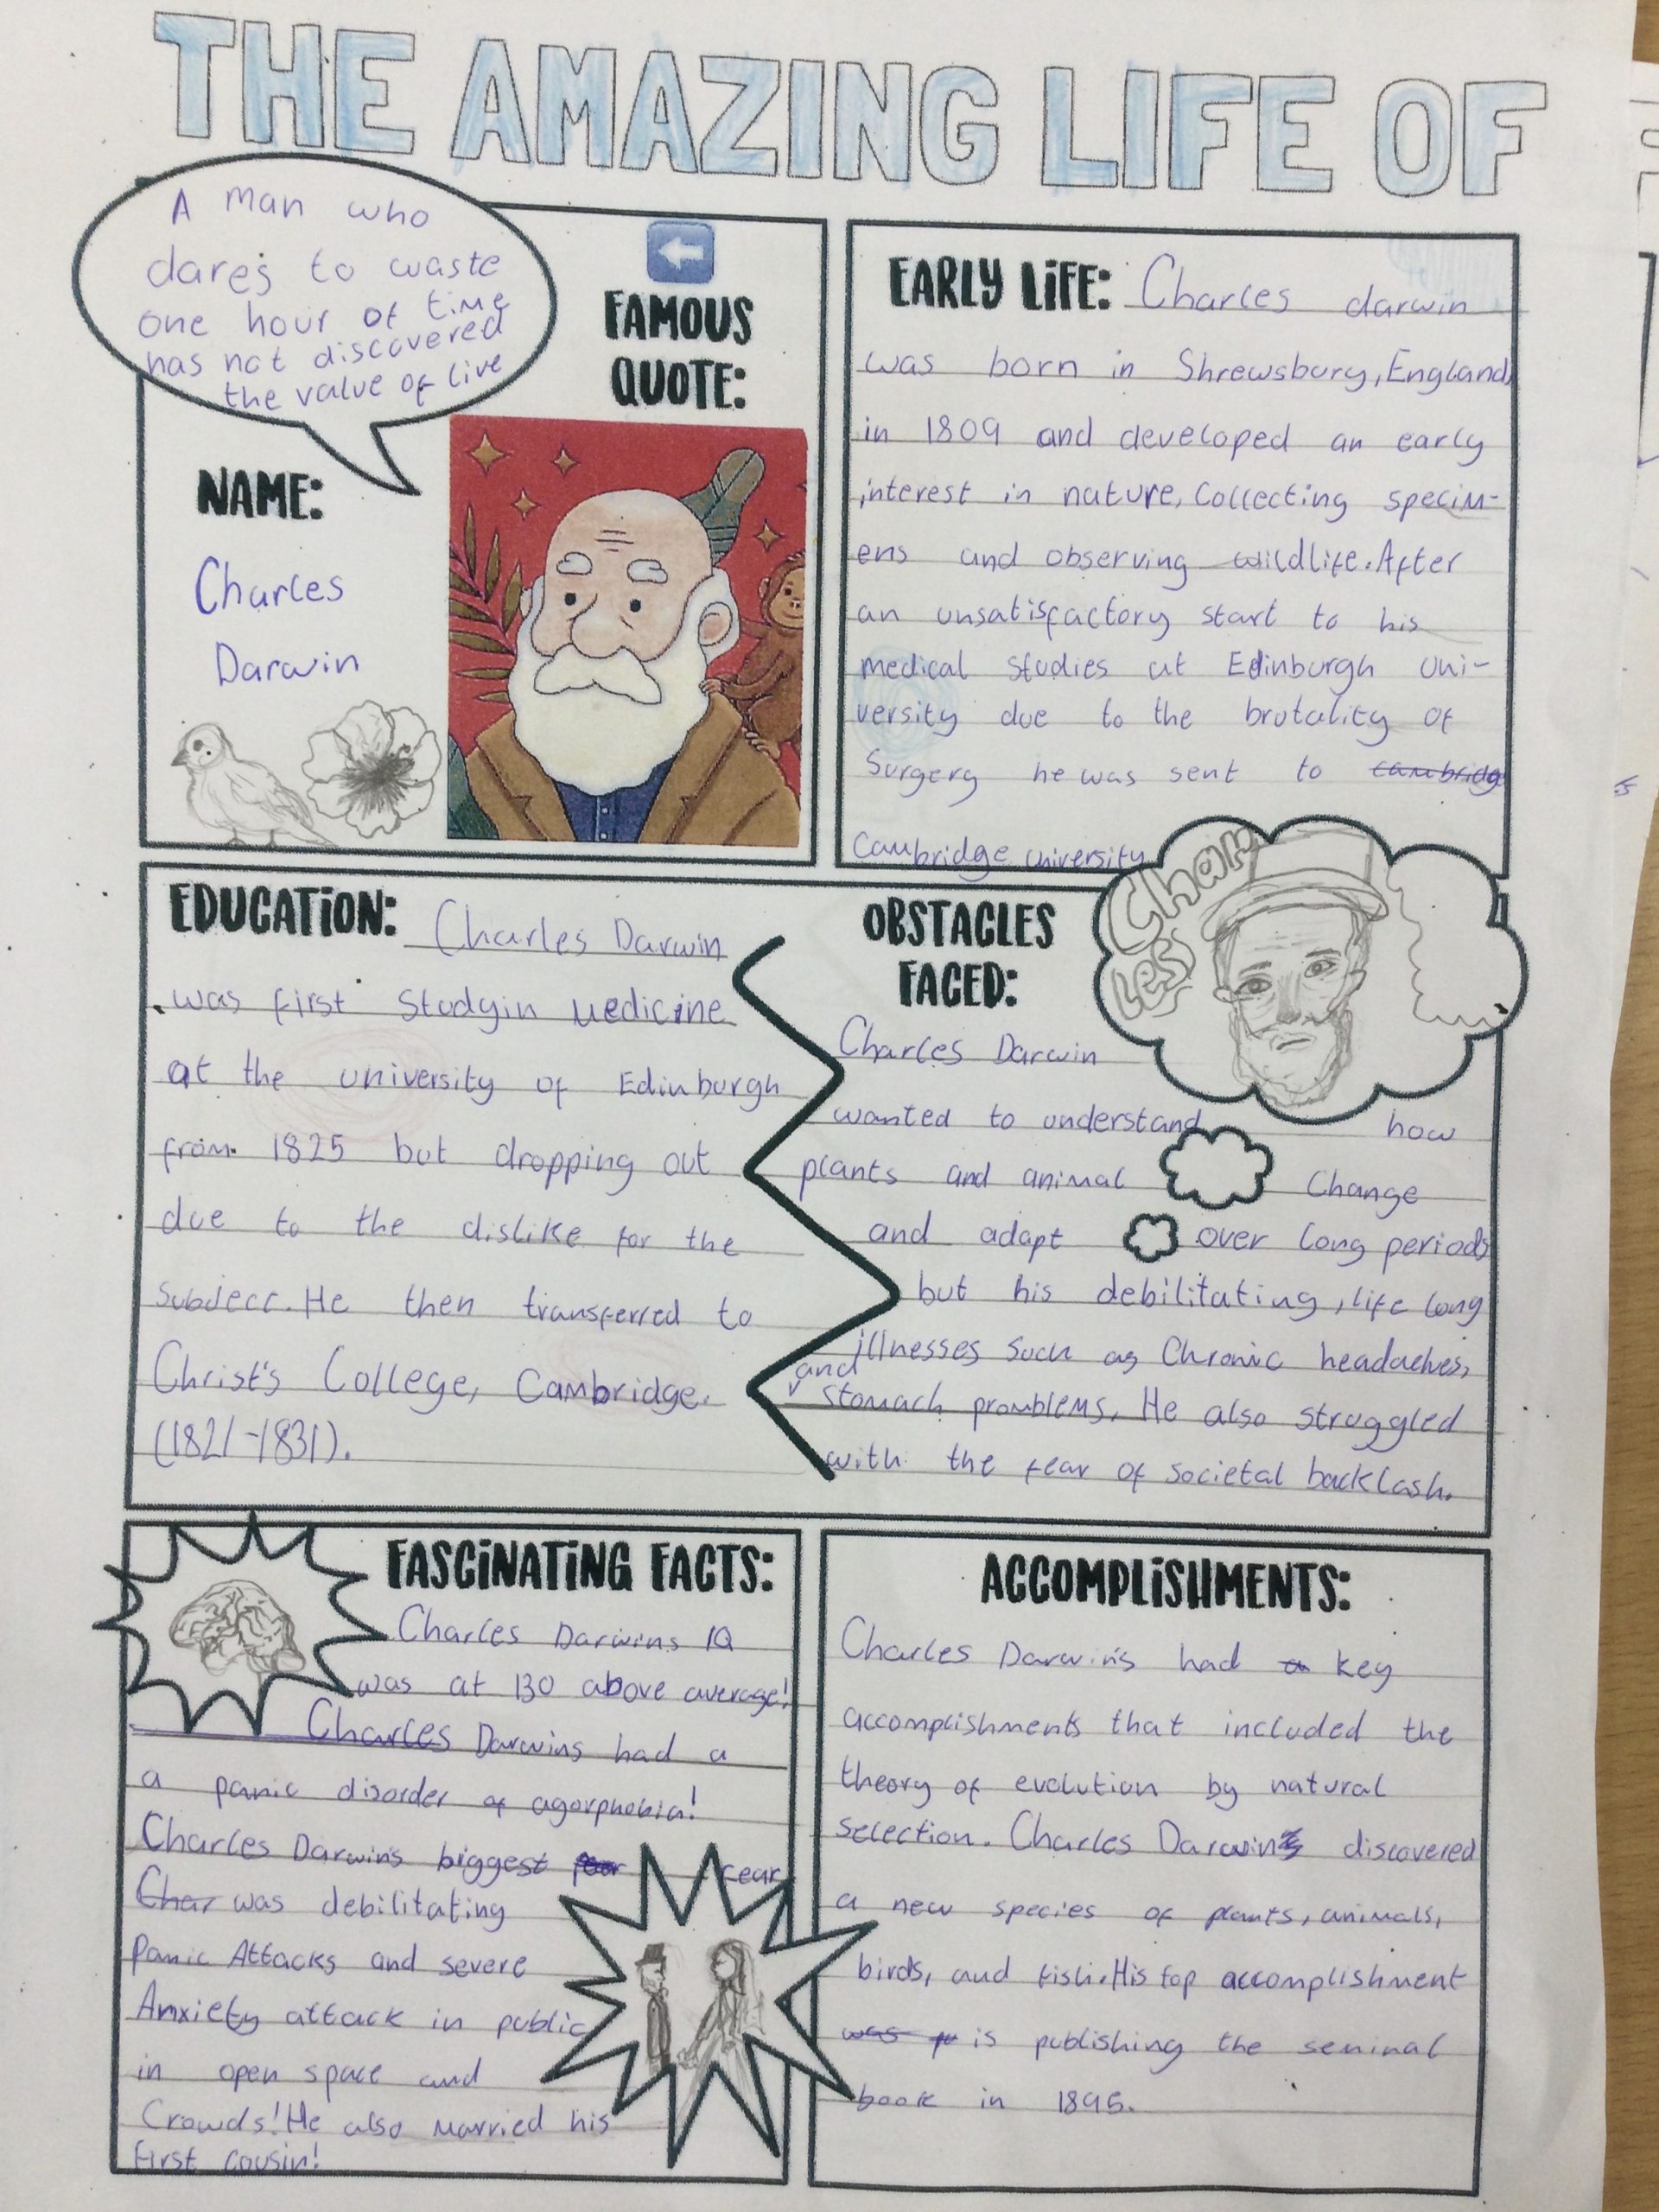 THE AMAZING LIFE OF
A man who
dares to waste
one hour of time
has not discovered
the value of live
FAMOUS
QUOTE:
NAME:
Charles
Darwin
EARLY LIFE: Charles darwin
was born in Shrewsbury, England,
in 1809 and developed an early
interest in nature, Collecting specim-
ens and observing wildlife. After
an unsatisfactory start to his
medical studies at Edinburgh uni-
versity due to the brutality of
Surgery he was sent to cambridge
Cambridge university
EDUCATION: Charles Darwin
was first studyin Medicine
at the university of Edinburgh
from 1825 but dropping out
due to the dislike for the
He then transferred to
Christ's College, Cambridge.
(1821-1831).
OBSTACLES
FACED:
Charles
Charles Darwin
wanted to understand how
plants and animal Change
and adapt over long periods
but his debilitating, life long
illnesses such as Chronic headaches,
and
stomach promblems. He also struggled
with the fear of societal backlash.
FASCINATING FACTS:
Charles Darwins IQ
was at 130 above average!
Charles Darwins had a
a panic disorder of agorphobia!
Charles Darwins biggest fear fear
Char was debilitating
Panic Attacks and severe
Anxiety attack in public
in open space and
Crowds! He also married his
first cousin!
ACCOMPLISHMENTS:
Charles Darwin's had a key
accomplishments that included the
theory of evolution by natural
selection. Charles Darwin's discovered
a new species of plants, animals,
birds, and fish. His top accomplishment
was is publishing the seminal
book in 1895.